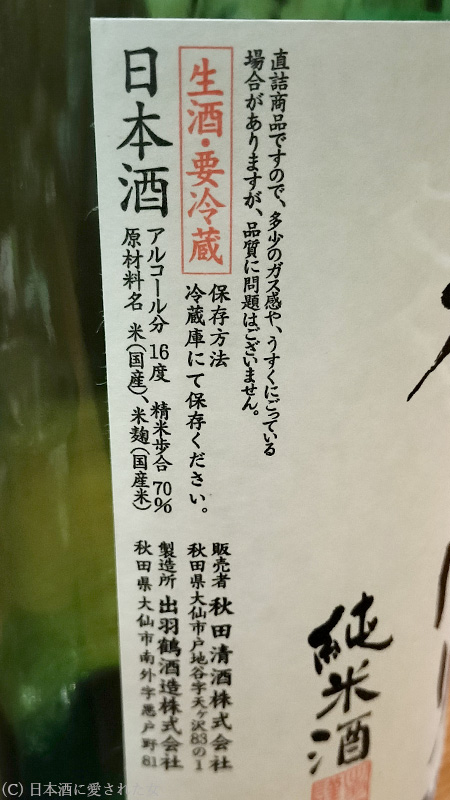 直詰商品ですので、多少のガス感や、うすくにごっている
場合がありますが、品質に問題はございません。
生酒・要冷蔵
保存方法
冷蔵庫にて保存ください。
日本酒
アルコール分 16度 精米歩合 70%
原材料名 米(国産)、米麹(国産米)
販売者 秋田清酒株式会社
秋田県大仙市戸地谷字天ケ沢83の1
製造所 出羽鶴酒造株式会社
秋田県大仙市南外字悪戸野81
純米酒
(C) 日本酒に愛された